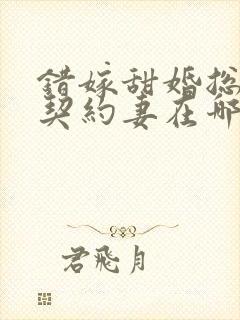 錯嫁甜婚總
契約妻在哪
君飛月